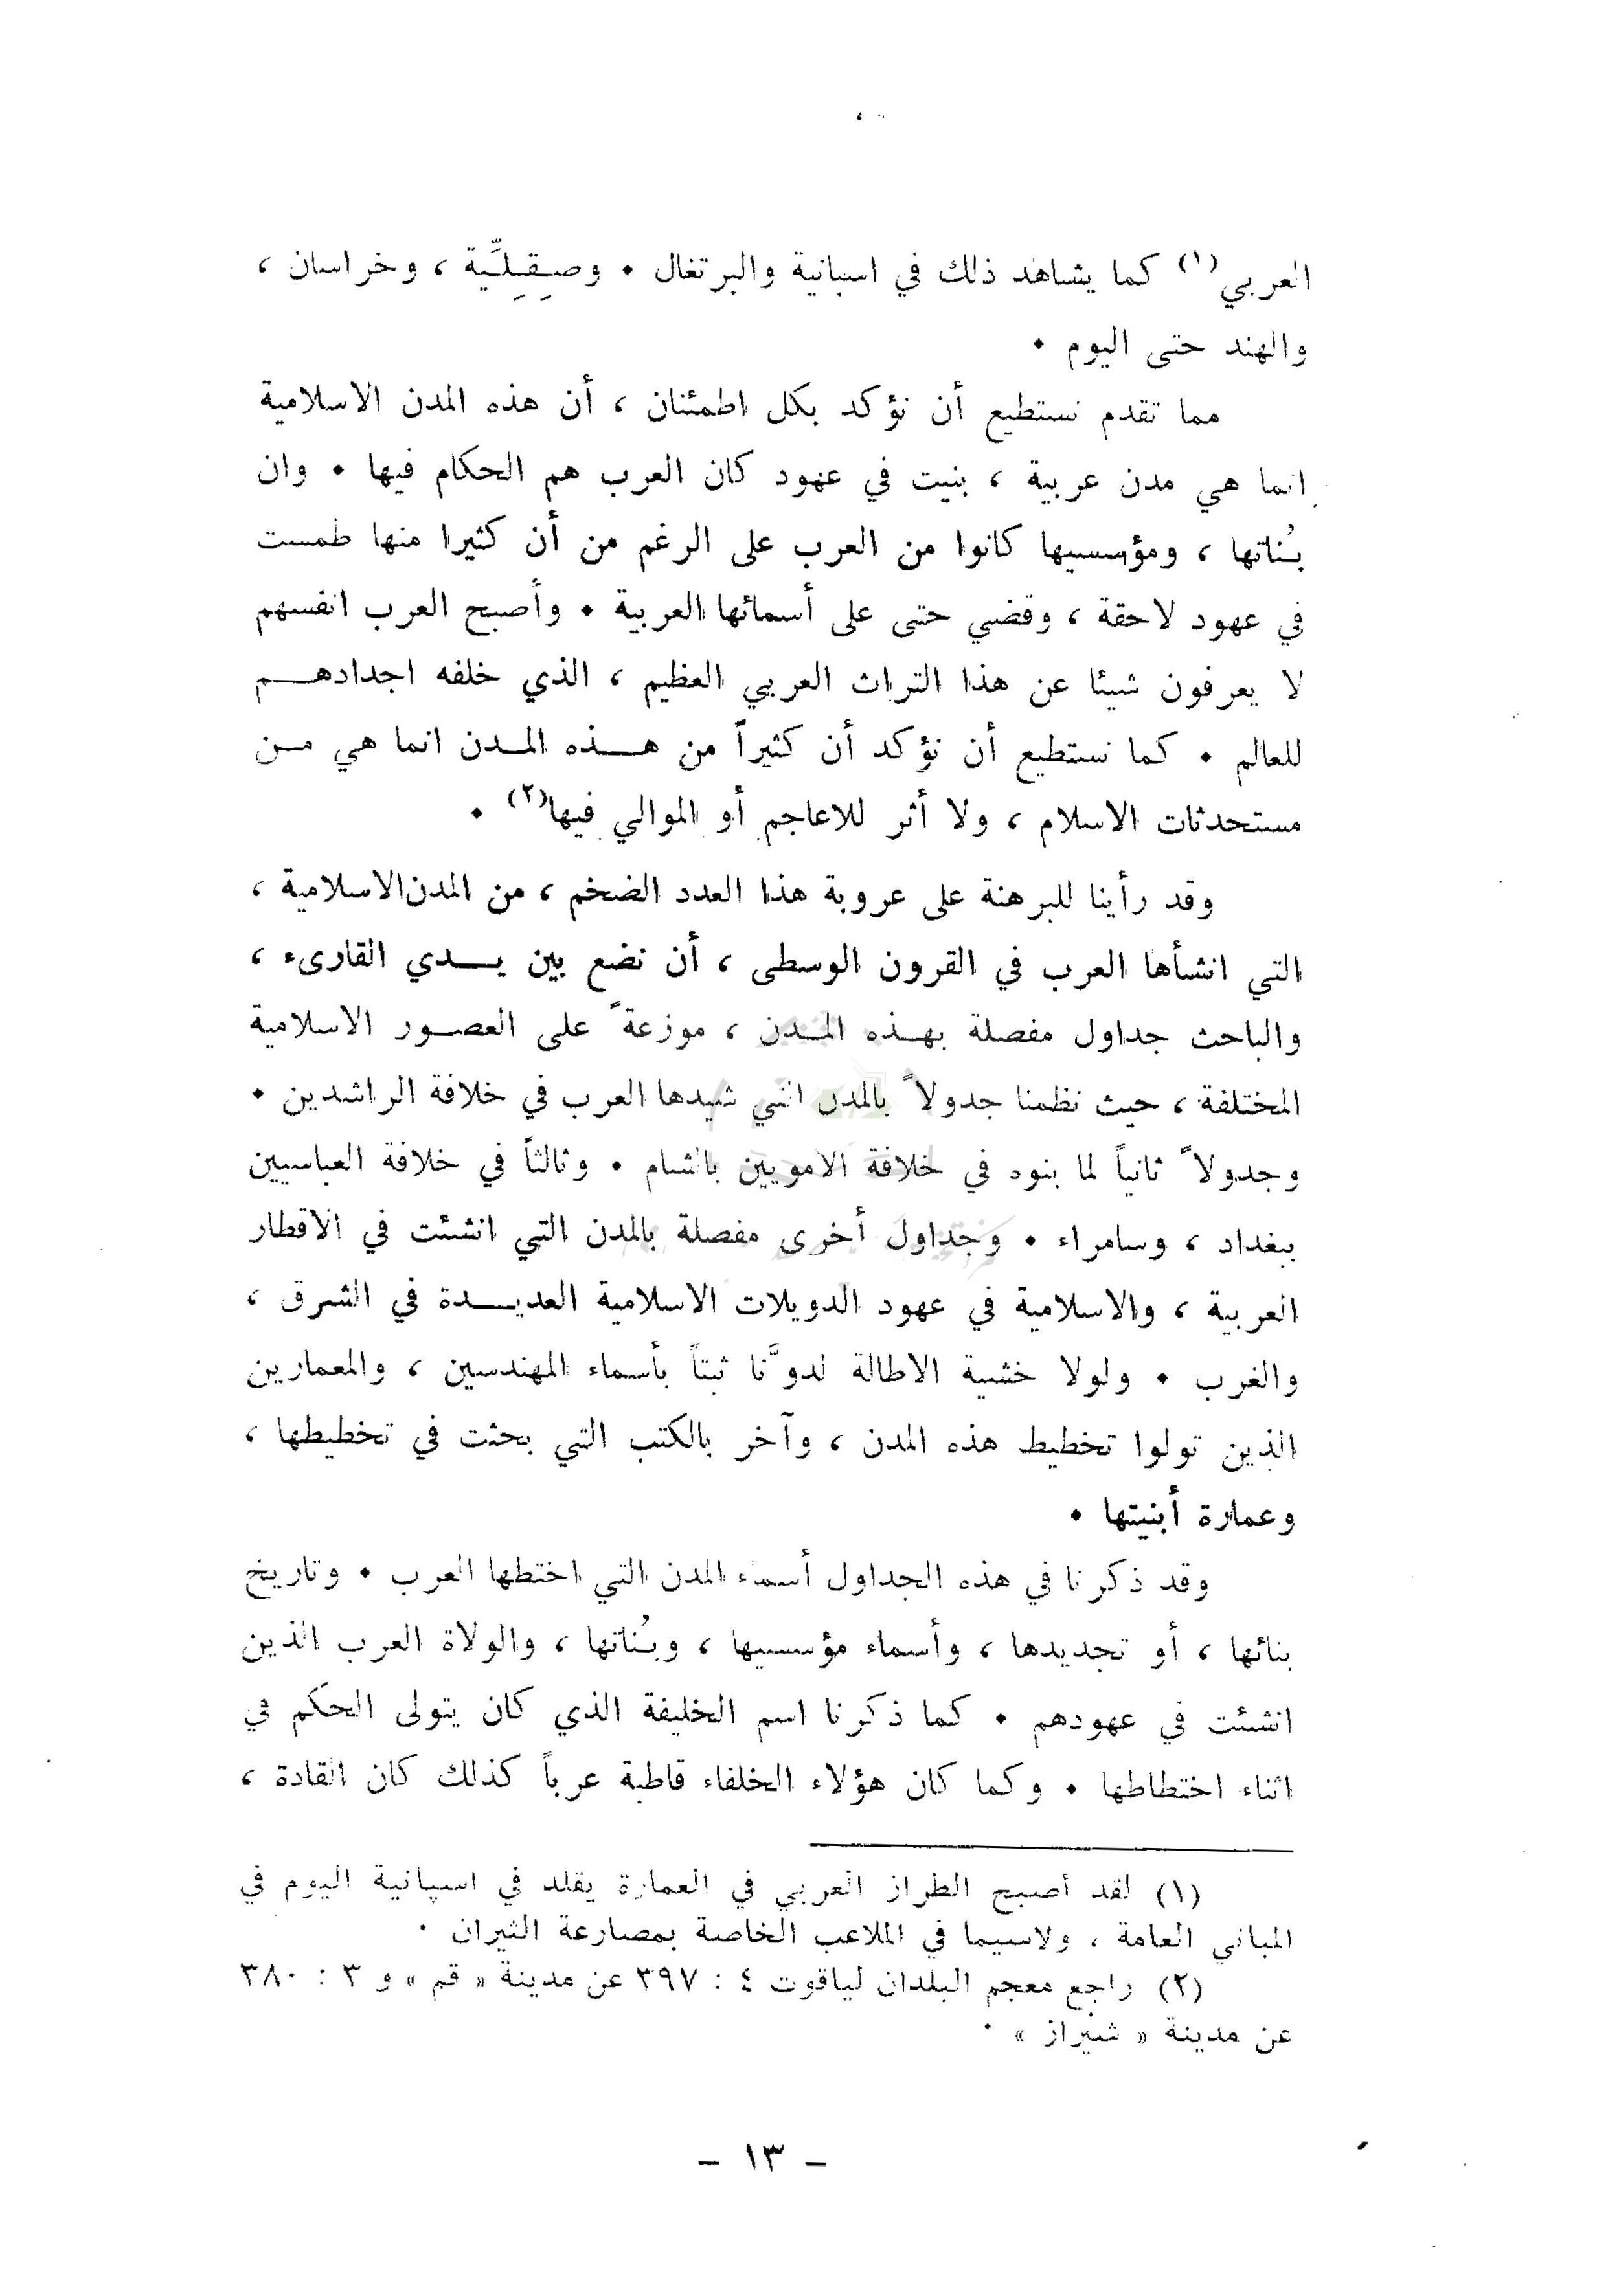 العربي(١) كما يشاهد ذلك في اسبانية والبرتغال • وصِقِلِّية ، وخراسان ،
والهند حتى اليوم •
مما تقدم نستطيع أن نؤكد بكل اطمئنان ، أن هذه المدن الاسلامية
انما هي مدن عربية ، بنيت في عهود كان العرب هم الحكام فيها • وان
بُناتها ، ومؤسسيها كانوا من العرب على الرغم من أن كثيرا منها طمست
في عهود لاحقة ، وقضي حتى على أسمائها العربية • وأصبح العرب انفسهم
لا يعرفون شيئا عن هذا التراث العربي العظيم ، الذي خلفه اجدادهم
للعالم • كما نستطيع أن نؤكد أن كثيراً من هذه المدن انما هي من
مستحدثات الاسلام ، ولا أثر للاعاجم أو الموالي فيها(٢) •
وقد رأينا للبرهنة على عروبة هذا العدد الضخم ، من المدن الاسلامية ،
التي انشأها العرب في القرون الوسطى ، أن نضع بين يدي القارىء ،
والباحث جداول مفصلة بهذه المدن ، موزعة ً على العصور الاسلامية
المختلفة ، حيث نظمنا جدولا ً بالمدن التي شيدها العرب في خلافة الراشدين •
وجدولا ً ثانياً لما بنوه في خلافة الامويين بالشام • وثالثاً في خلافة العباسيين
ببغداد ، وسامراء • وجداول أخرى مفصلة بالمدن التي انشئت في الاقطار
العربية ، والاسلامية في عهود الدويلات الاسلامية العديدة في الشرق ،
والغرب • ولولا خشية الاطالة لدوَّنا ثبتاً بأسماء المهندسين ، والمعمارين
الذين تولوا تخطيط هذه المدن ، وآخر بالكتب التي بحثت في تخطيطها ،
وعمارة أبنيتها •
وقد ذكرنا في هذه الجداول أسماء المدن التي اختطها العرب • وتاريخ
بنائها ، أو تجديدها ، وأسماء مؤسسيها ، وبُناتها ، والولاة العرب الذين
انشئت في عهودهم • كما ذكرنا اسم الخليفة الذي كان يتولى الحكم في
اثناء اختطاطها • وكما كان هؤلاء الخلفاء قاطبة عرباً كذلك كان القادة ،
(١) لقد أصبح الطراز العربي في العمارة يقلد في اسپانية اليوم في
المباني العامة ، ولاسيما في الملاعب الخاصة بمصارعة الثيران •
(٢) راجع معجم البلدان لياقوت ٤ : ٣٩٧ عن مدينة « قم » و ٣ : ٣٨٠
عن مدينة « شيراز » •
– ١٣ –